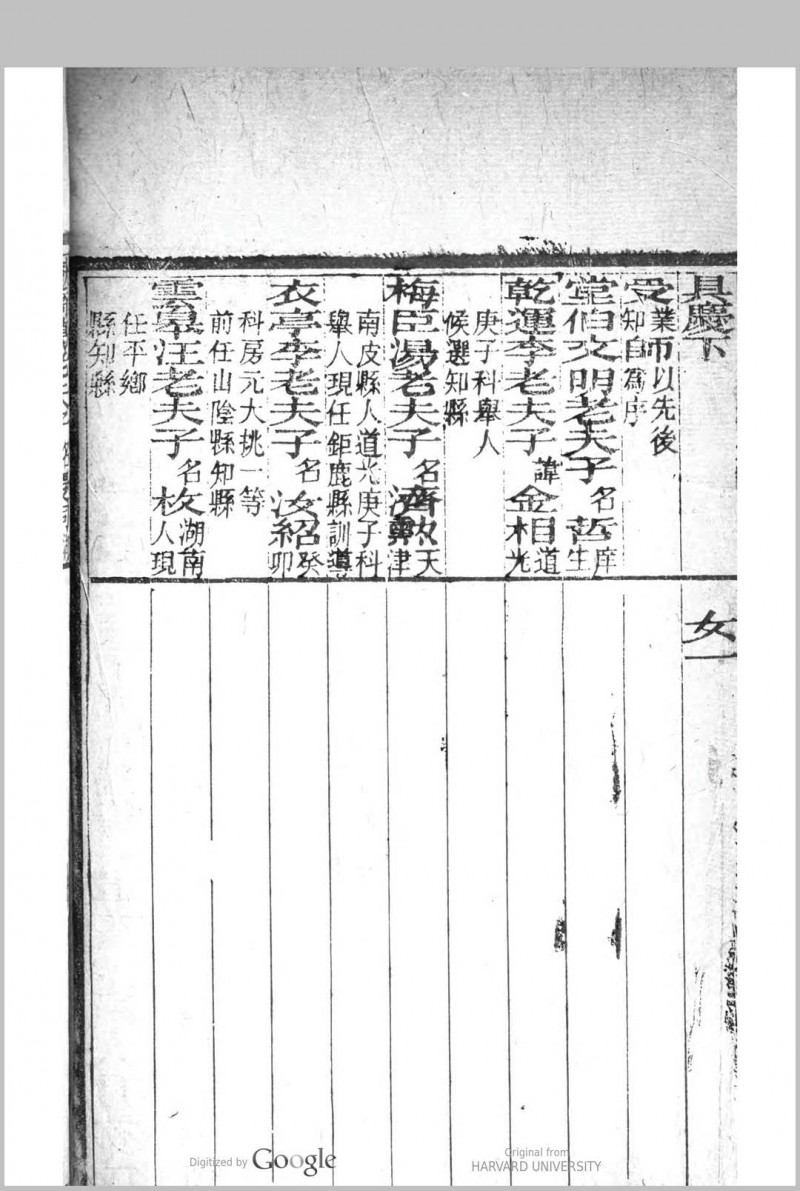 具慶下
受業知師以先後為序
堂伯文明老夫子名哲庠生
乾運李老夫子諱金相道光
庚子科舉人
候選知縣
梅臣湯老夫子名濟 天津
南皮縣人道光庚子科
舉人現任鉅鹿縣訓導
衣亭李老夫子名汝紹癸卯
科房元大挑一等
前任山陰縣知縣
雲皋汪老夫子名枚湖南人現
任平鄉
縣知縣
女一
Digitized by Google
Original from
HARVARD UNIVERSITY